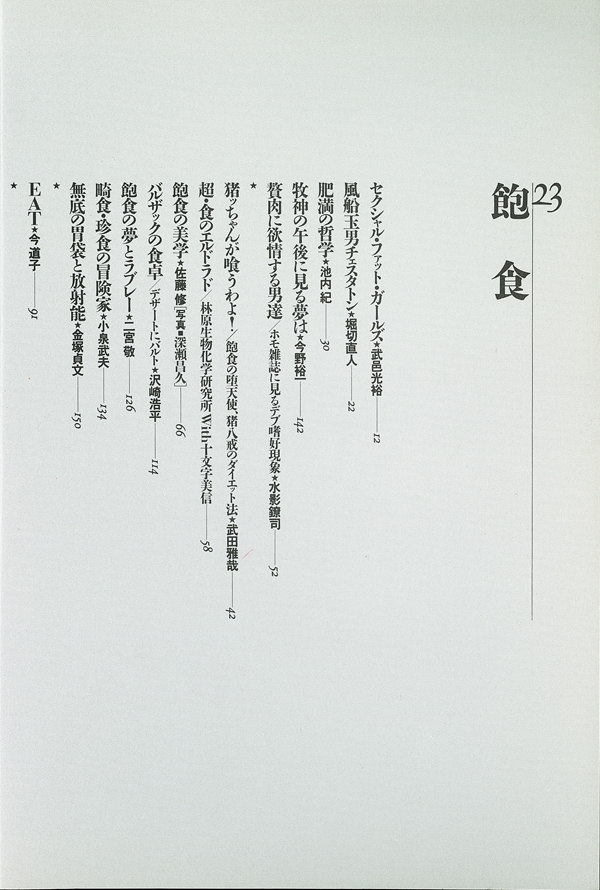 23
飽食
セクシャル・ファット・ガールズ★武邑光裕——12
風船玉男チェスタトン★堀切直人——22
肥満の哲学★池内 紀——30
牧神の午後に見る夢は★今野裕一——142
贅肉に欲情する男達/ホモ雑誌に見るデブ嗜好現象★水影鐐司——52
★
猪ッちゃんが喰うわよ!/飽食の堕天使、猪八戒のダイエット法★武田雅哉——42
超・食のエルドラド/林原生物化学研究所With十文字美信——58
飽食の美学★佐藤 修[写真■深瀬昌久]——66
バルザックの食卓/デザートに、バルト★沢崎浩平——114
飽食の夢とラブレー★二宮 敬——126
畸食・珍食の冒険家★小泉武夫——134
無底の胃袋と放射能★金塚貞文——150
★
EAT★今 道子——91
★